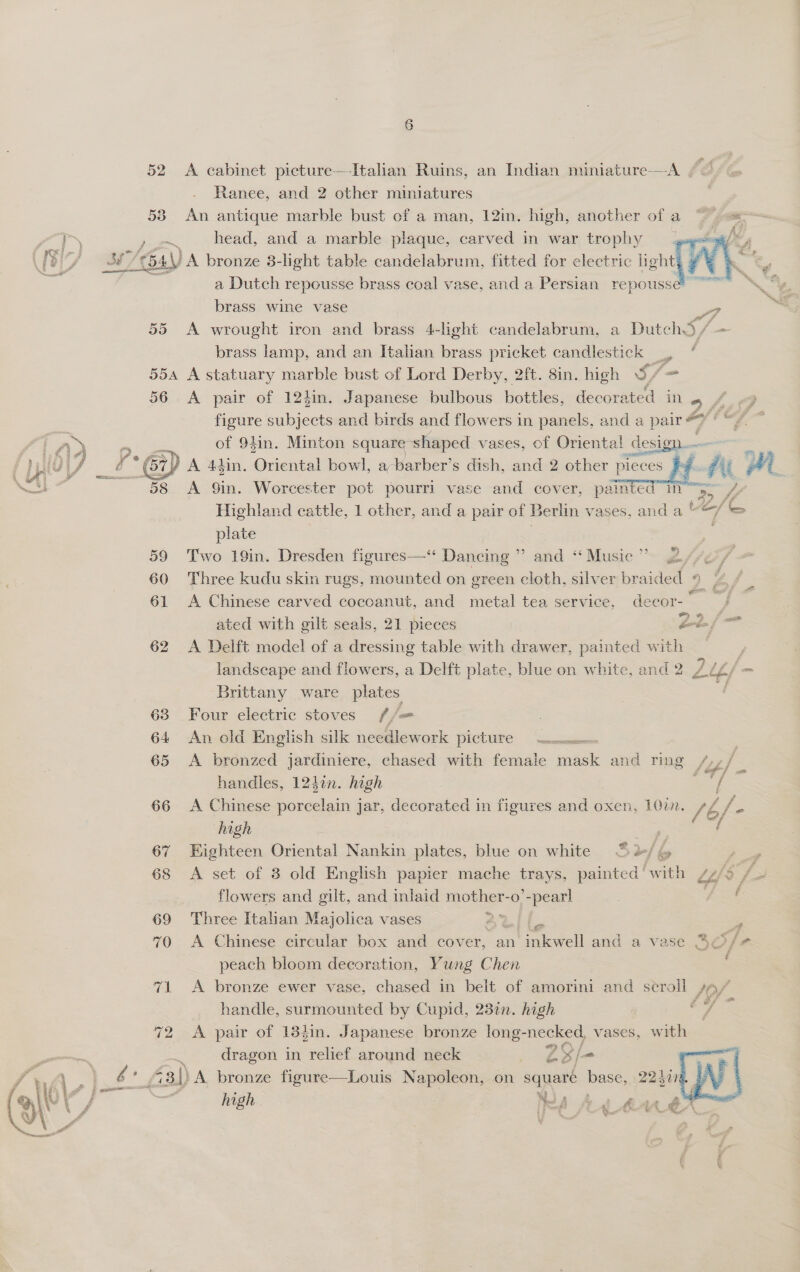 6
52 A cabinet picture—Italian Ruins, an Indian miniature—A
Ranee, and 2 other miniatures
53 An antique marble bust of a man, 12in. high, another of a
head, and a marble plaque, carved in war trophy
54 A bronze 3-light table candelabrum, fitted for electric light,
a Dutch repousse brass coal vase, and a Persian repousse
brass wine vase
55 A wrought iron and brass 4-light candelabrum, a Dutch
brass lamp, and an Italian brass pricket candlestick
55A A statuary marble bust of Lord Derby, 2ft. 8in. high
56 A pair of 12½in. Japanese bulbous bottles, decorated in
figure subjects and birds and flowers in panels, and a pair
of 9½in. Minton square-shaped vases, of Oriental design
57 A 4½in. Oriental bowl, a barber's dish, and 2 other pieces
58 A 9in. Worcester pot pourri vase and cover, painted in
Highland cattle, 1 other, and a pair of Berlin vases, and a
plate
59 Two 19in. Dresden figures—“ Dancing ” and “ Music ”
60 Three kudu skin rugs, mounted on green cloth, silver braided
61 A Chinese carved cocoanut, and metal tea service, decor-
ated with gilt seals, 21 pieces
62 A Delft model of a dressing table with drawer, painted with
landscape and flowers, a Delft plate, blue on white, and 2
Brittany ware plates
63 Four electric stoves
64 An old English silk needlework picture
65 A bronzed jardiniere, chased with female mask and ring
handles, 12½in. high
66 A Chinese porcelain jar, decorated in figures and oxen, 10in.
high
67 Eighteen Oriental Nankin plates, blue on white
68 A set of 3 old English papier mache trays, painted with
flowers and gilt, and inlaid mother-o'-pearl
69 Three Italian Majolica vases
70 A Chinese circular box and cover, an inkwell and a vase
peach bloom decoration, Yung Chen
71 A bronze ewer vase, chased in belt of amorini and scroll
handle, surmounted by Cupid, 23in. high
72 A pair of 13½in. Japanese bronze long-necked vases, with
dragon in relief around neck
73 A bronze figure—Louis Napoleon, on square base, 22½in.
high